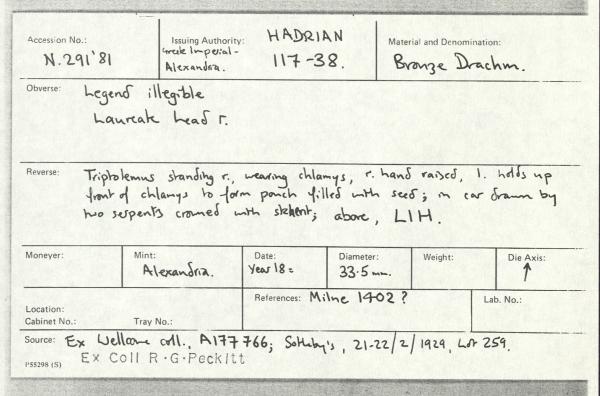 Accession No.:
N.291'81
Issuing Authority: HADRIAN
Greek Imperial-
Alexandria. 117-38.
Material and Denomination:
Bronze Drachm.
Obverse: Legend illegible
Laureate head r.
Reverse: Triptolemus standing r., wearing chlamys, r. hand raised, l. holds up
front of chlamys to form pouch filled with seed; in car drawn by
two serpents crowned with skhent; above, LIH.
Moneyer:
Mint:
Alexandria.
Date:
Year 18 =
Diameter:
33.5 mm.
Weight:
Die Axis:
↑
Location:
Cabinet No.: Tray No.:
References: Milne 1402 ?
Lab. No.:
Source: Ex Wellcome coll., A177766; Sotheby's, 21-22/2/1929, Lot 259.
Ex Coll R.G.Peckitt
P55298 (S)